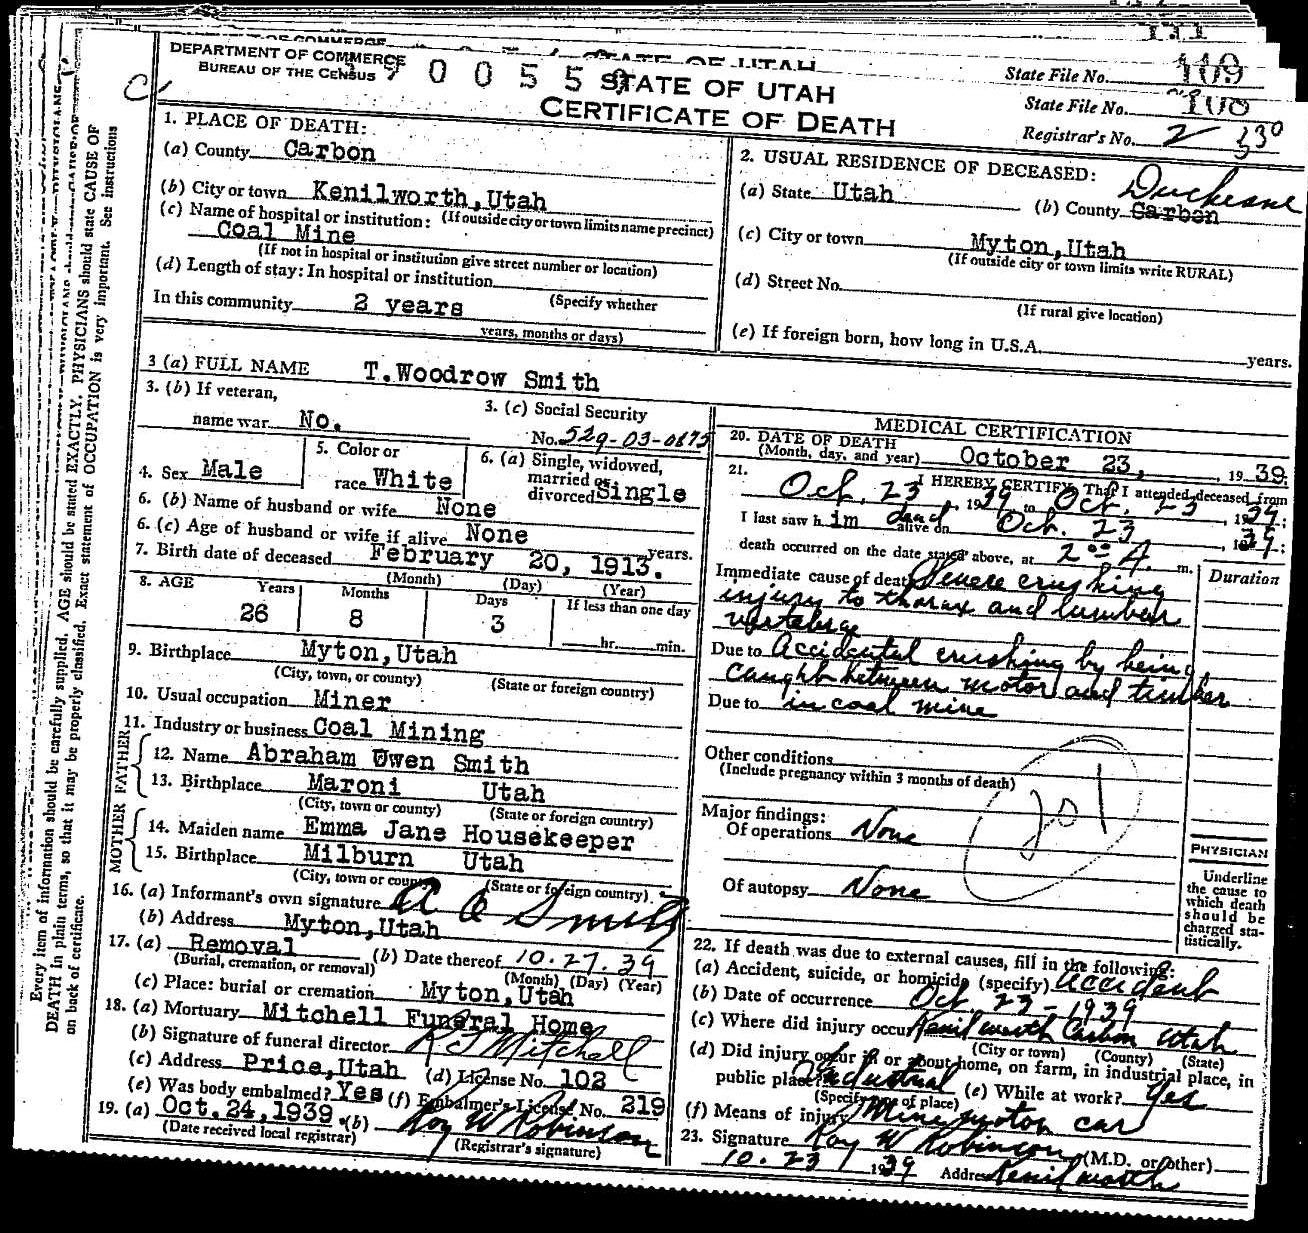 DEPARTMENT OF COMMERCE
BUREAU OF THE CENSUS
7 0 0 5 5
STATE OF UTAH
CERTIFICATE OF DEATH
State File No. 109
State File No. 108
Registrar's No. 2
330
1. PLACE OF DEATH:
(a) County Carbon
(b) City or town Kenilworth, Utah
(If outside city or town limits name precinct)
(c) Name of hospital or institution:
Coal Mine
(If not in hospital or institution give street number or location)
(d) Length of stay: In hospital or institution
(Specify whether
In this community 2 years
years, months or days)
2. USUAL RESIDENCE OF DECEASED:
(a) State Utah (b) County Carbon Duchesne
(c) City or town Myton, Utah
(If outside city or town limits write RURAL)
(d) Street No.
(If rural give location)
(e) If foreign born, how long in U.S.A. years.
3 (a) FULL NAME T. Woodrow Smith
3. (b) If veteran,
name war No.
3. (c) Social Security
No. 529-03-0675
4. Sex Male
5. Color or
race White
6. (a) Single, widowed,
married or
divorced Single
6. (b) Name of husband or wife None
6. (c) Age of husband or wife if alive None years.
7. Birth date of deceased February 20, 1913.
(Month) (Day) (Year)
8. AGE Years Months Days If less than one day
26 8 3 hr. min.
9. Birthplace Myton, Utah
(City, town, or county) (State or foreign country)
10. Usual occupation Miner
11. Industry or business Coal Mining
FATHER
12. Name Abraham Owen Smith
13. Birthplace Maroni Utah
(City, town or county) (State or foreign country)
MOTHER
14. Maiden name Emma Jane Housekeeper
15. Birthplace Milburn Utah
(City, town or county) (State or foreign country)
16. (a) Informant's own signature A O Smith
(b) Address Myton, Utah
17. (a) Removal (b) Date thereof 10.27.39
(Burial, cremation, or removal) (Month) (Day) (Year)
(c) Place: burial or cremation Myton, Utah
18. (a) Mortuary Mitchell Funeral Home
(b) Signature of funeral director R F Mitchell
(c) Address Price, Utah (d) License No. 102
(e) Was body embalmed? Yes (f) Embalmer's License No. 219
19. (a) Oct. 24, 1939. (b) Roy W Robinson
(Date received local registrar) (Registrar's signature)
MEDICAL CERTIFICATION
20. DATE OF DEATH
(Month, day, and year) October 23, 1939.
21. I HEREBY CERTIFY, That I attended deceased from
Oct. 23, 1939 to Oct. 23, 1939;
I last saw h im dead alive on Oct. 23, 1939;
death occurred on the date stated above, at 2 00 A. m.
Duration
Immediate cause of death Severe crushing
injury to thorax and lumbar
vertebrae
Due to Accidental crushing by being
caught between motor and timber
Due to in coal mine
Other conditions
(Include pregnancy within 3 months of death)
Major findings:
Of operations None
Of autopsy None
201
PHYSICIAN
Underline
the cause to
which death
should be
charged sta-
tistically.
22. If death was due to external causes, fill in the following:
(a) Accident, suicide, or homicide (specify) Accident
(b) Date of occurrence Oct 23 - 1939
(c) Where did injury occur? Kenilworth Carbon Utah
(City or town) (County) (State)
(d) Did injury occur in or about home, on farm, in industrial place, in
public place? Industrial (e) While at work? Yes
(Specify type of place)
(f) Means of injury Mine motor car
23. Signature Roy W Robinson (M.D. or other)
10.23 1939 Address Kenilworth
Every item of information should be carefully supplied. AGE should be stated EXACTLY. PHYSICIANS should state CAUSE OF
DEATH in plain terms, so that it may be properly classified. Exact statement of OCCUPATION is very important. See instructions
on back of certificate.